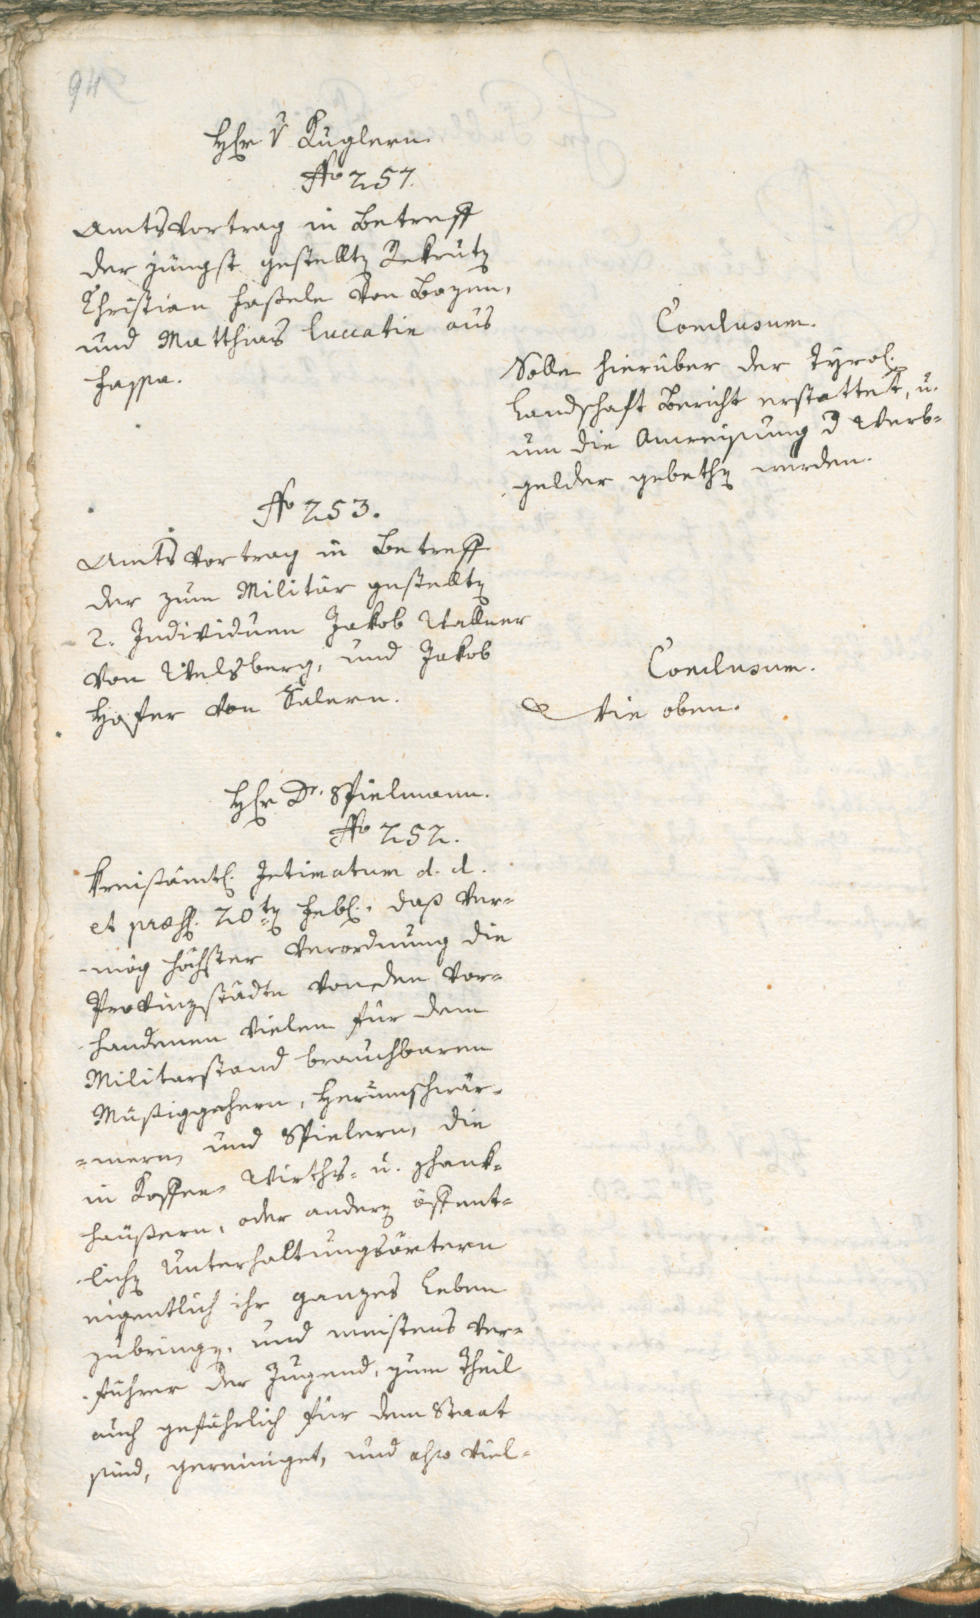 94
Hr. v Kuglern.
No 257.
Amtsvortrag in Betreff
der jüngst gestellten Rekruten
Christian Haßele von Bozen,
und Matthias Luccatin aus
Fassa.
Conclusum.
Solle hierüber der Tyrol.
Landschaft Bericht erstattet, u.
um die Anweisung d Werb-
gelder gebethen werden.
No 253.
Amtsvortrag in Betreff
der zum Militär gestellten
2. Individuen Jakob Wallner
von Welsberg, und Jakob
Hofer von Salern.
Conclusum.
Wie oben.
Hr. Dr. Spielmann.
No 252.
Kreisämtl. Intimatum d. d.
et præs. 20ten Febl., daß ver-
mög höchster Verordnung die
Provinzstädte von den vor-
handenen vielen für dem
Militarstand brauchbaren
Müßiggehern, Herumschwär-
mern und Spielern, die
in Koffee- Wirths- u. Schank-
häußern, oder andern öffent-
lichen Unterhaltungsörtern
eigentlich ihr ganzes Leben
zubringen, und meistens Ver-
führer der Jugend, zum Theil
auch gefährlich für dem Staat
sind, gereiniget, und also viel-